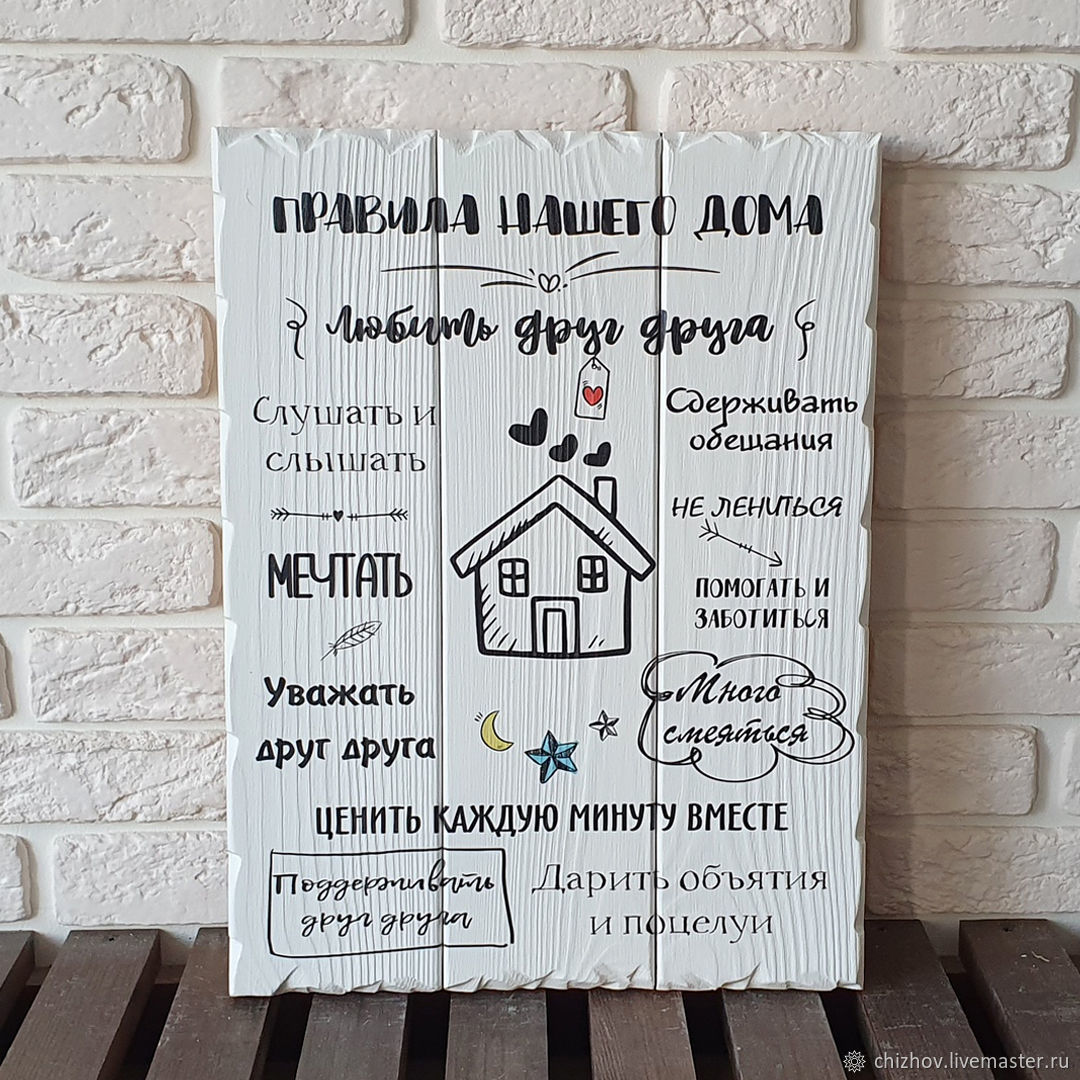 ПРАВИЛА НАШЕГО ДОМА
Любить друг друга
Слушать и
слышать
МЕЧТАТЬ
Уважать
друг друга
Сдерживать
обещания
НЕ ЛЕНИТЬСЯ
ПОМОГАТЬ И
ЗАБОТИТЬСЯ
Много
смеяться
ЦЕНИТЬ КАЖДУЮ МИНУТУ ВМЕСТЕ
Поддерживать
друг друга
Дарить объятия
и поцелуи
chizhov.livemaster.ru